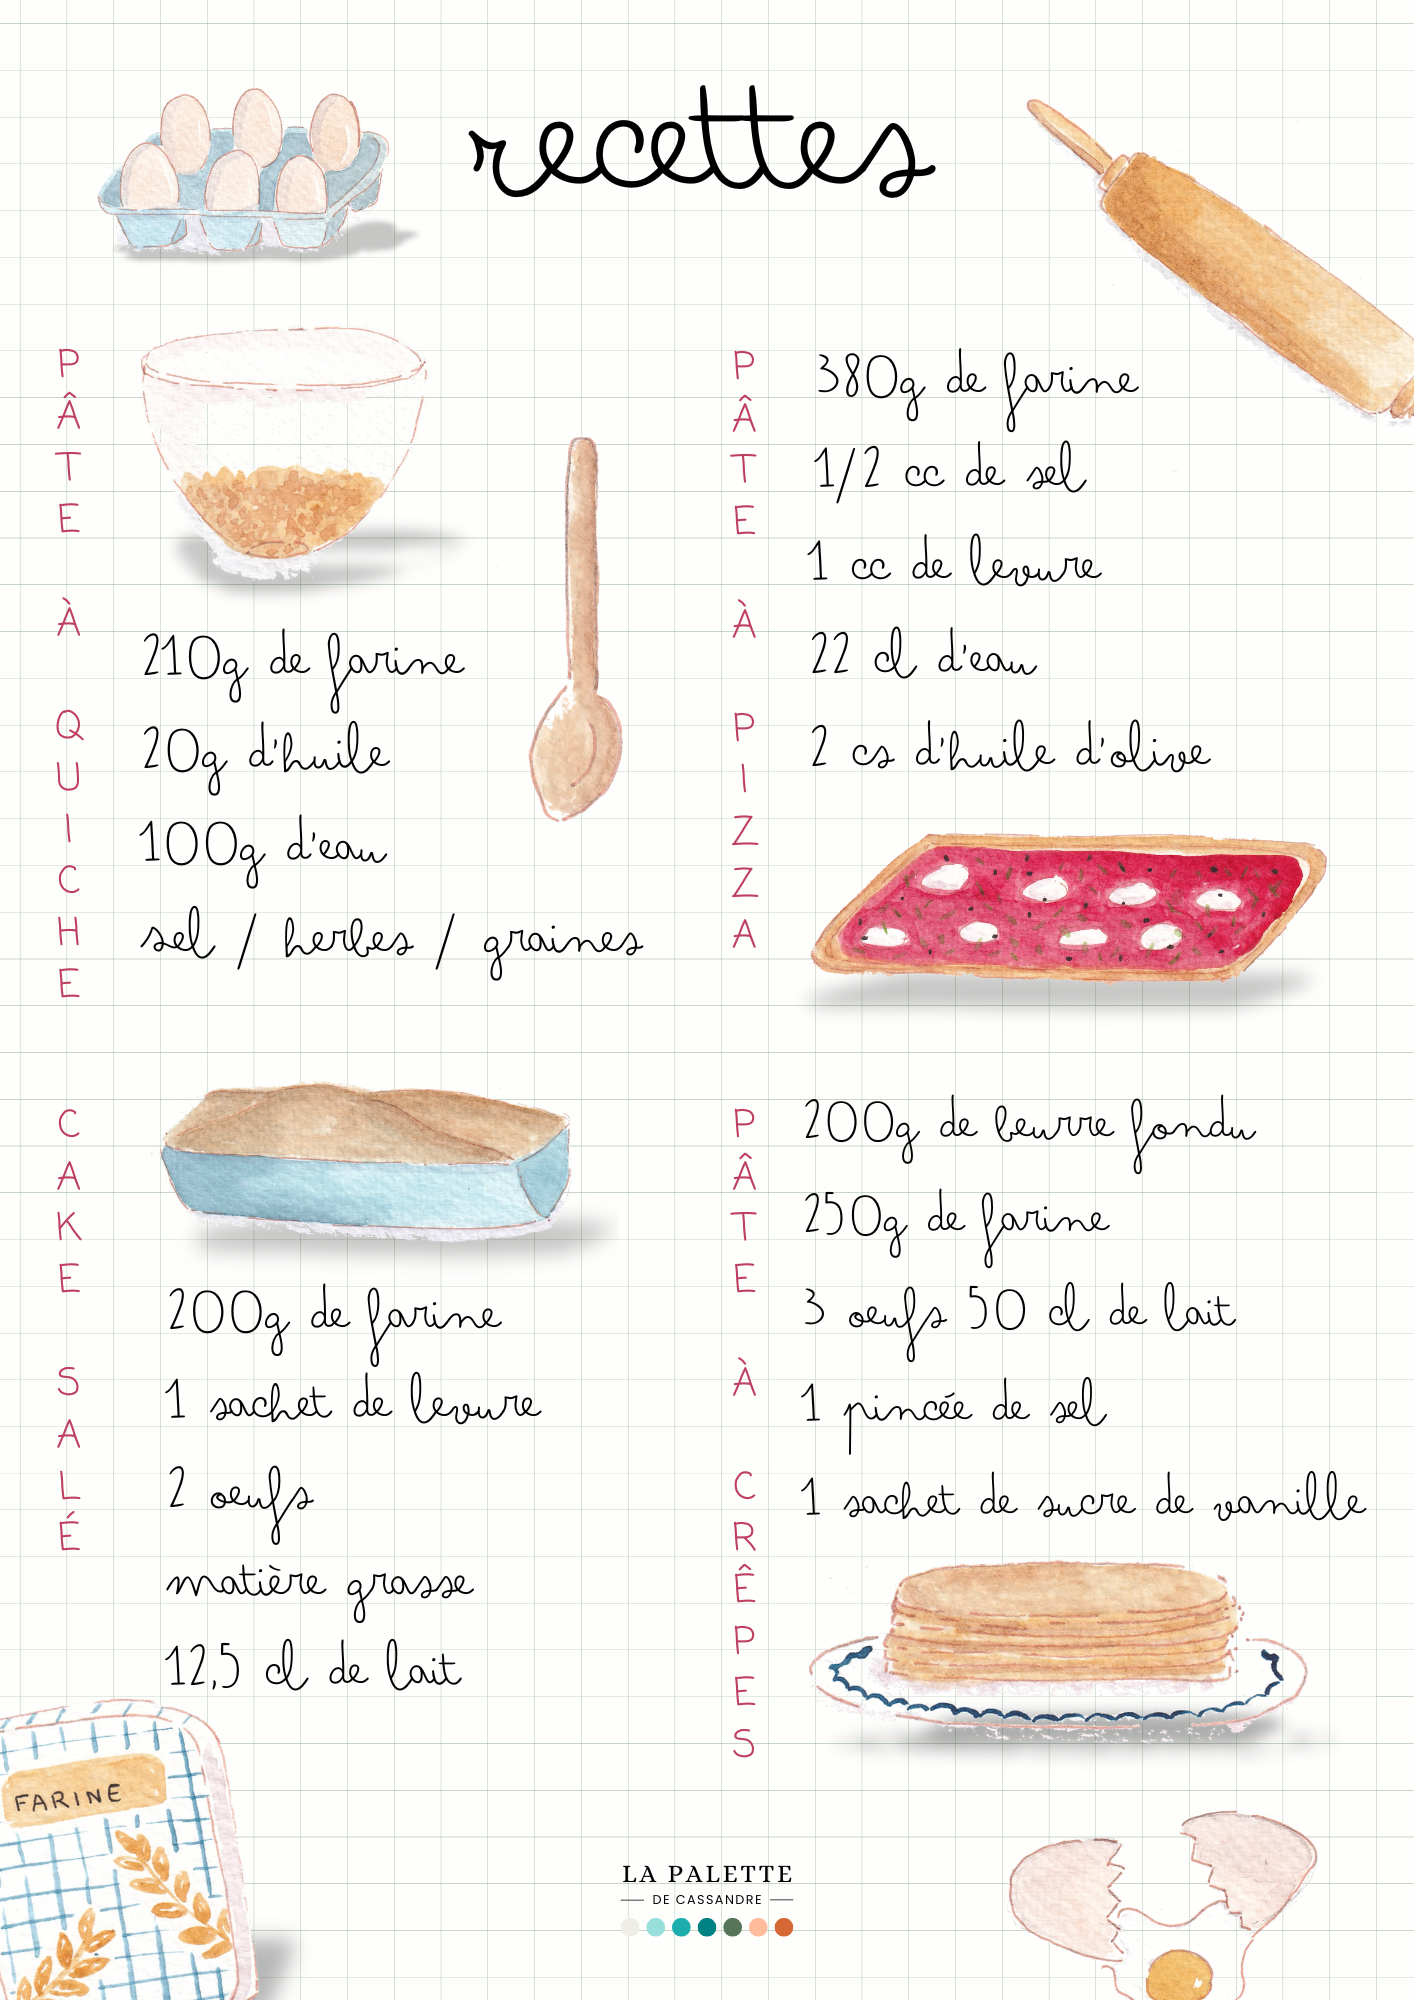 recettes
PÂTE À QUICHE
210g de farine
20g d'huile
100g d'eau
sel / herbes / graines
PÂTE À PIZZA
380g de farine
1/2 cc de sel
1 cc de levure
22 cl d'eau
2 cs d'huile d'olive
CAKE SALÉ
200g de farine
1 sachet de levure
2 oeufs
matière grasse
12,5 cl de lait
PÂTE À CRÊPES
200g de beurre fondu
250g de farine
3 oeufs 50 cl de lait
1 pincée de sel
1 sachet de sucre de vanille
FARINE
LA PALETTE
DE CASSANDRE